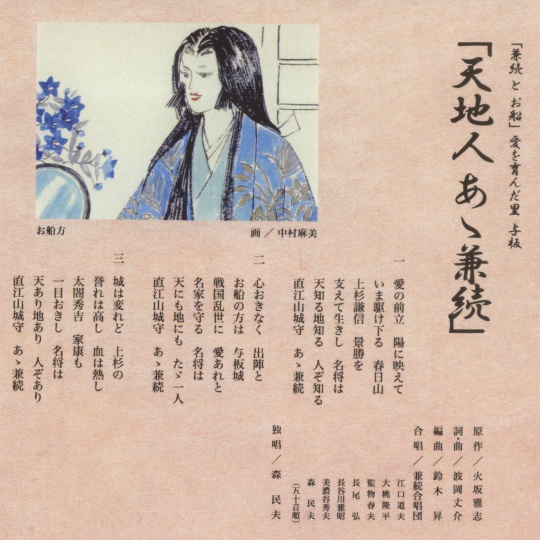 「兼続とお船」愛を育んだ里 与板
「天地人あゝ兼続」
お船方
画／中村麻美
一 愛の前立 陽に映えて
いま駆け下る 春日山
上杉謙信 景勝を
支えて生きし 名将は
天知る地知る 人ぞ知る
直江山城守 あゝ兼続
二 心おきなく 出陣と
お船の方は 与板城
戦国乱世に 愛あれと
名家を守る 名将は
天にも地にも たゞ一人
直江山城守 あゝ兼続
三 城は変れど 上杉の
誉れは高し 血は熱し
太閤秀吉 家康も
一目おきし 名将は
天あり地あり 人ぞあり
直江山城守 あゝ兼続
原作／火坂雅志
詞・曲／波岡丈介
編曲／鈴木 昇
合唱／兼続合唱団
江口道夫
大桃隆平
監物春夫
長尾 弘
長谷川雅昭
美濃谷秀夫
森 民夫
（五十音順）
独唱／森 民夫